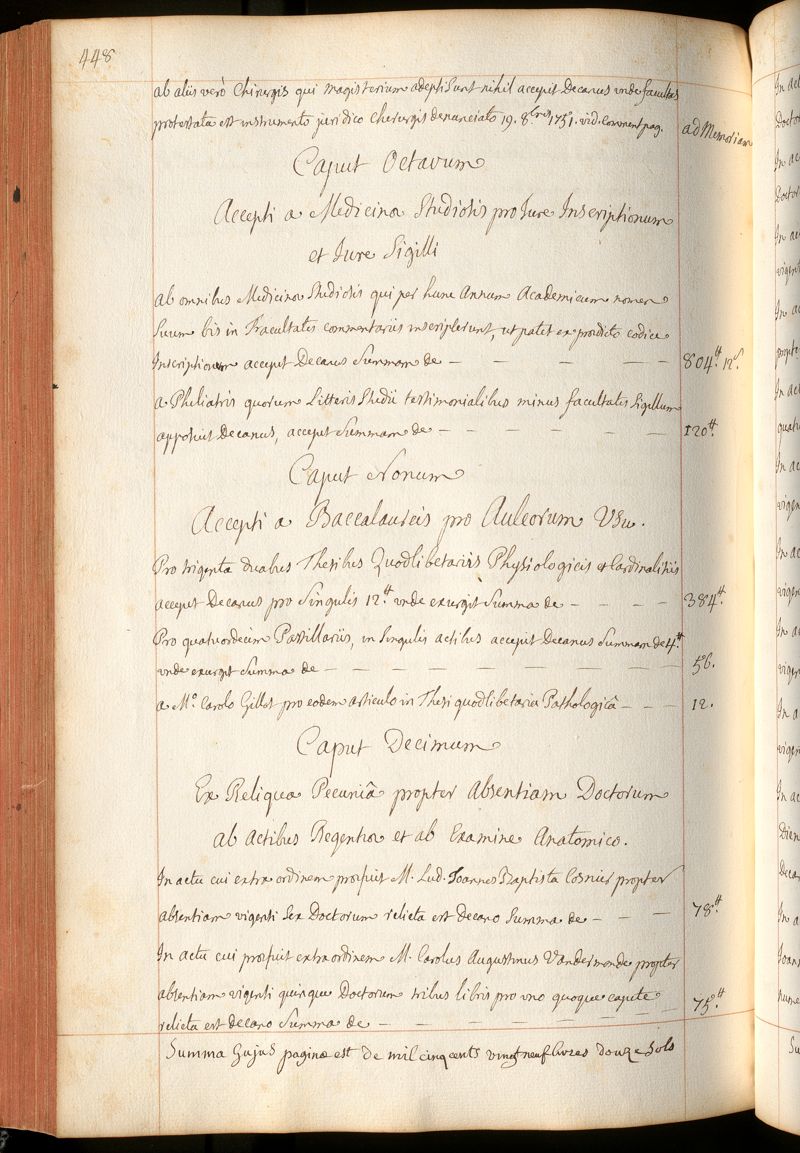 448
ab aliis verò Chirurgis qui magisterium adepti sunt nihil accepit Decanus unde facultas
protestata est instrumento juridico chirurgis denunciato 19. 8bris 1751. vid. comment pag. ad Memoriam
Caput Octavum
Accepti a Medicinæ Studiosis pro Jure Inscriptionum
et Jure Sigilli
ab omnibus Medicinæ Studiosis qui per hunc Annum Academicum nomen
Suum bis in Facultatis commentariis inscripserunt, ut patet ex prædicto codice
Inscriptionum accepit Decanus Summam de — — — — 804tt. 12s.
a Philiatris quorum Litteris Studii testimonialibus minus facultatis Sigillum
apposuit Decanus, accepit Summam de — — — — — 120tt.
Caput Nonum
Accepti a Baccalaureis pro Aulæorum Usu.
Pro triginta duabus Thesibus Quodlibetariis Physiologicis et Cardinalitiis
accepit Decanus pro Singulis 12.tt unde exurgit Summa de — — — — 384tt.
Pro quatuordecim Pastillariis, in Singulis actibus accepit Decanus Summam de 4.tt
unde exurgit Summa de — — — — — — — 56.
a Mo. Carolo Gillot pro eodem articulo in Thesi quodlibetaria Pathologicâ — — — 12.
Caput Decimum
Ex Reliqua Pecuniâ propter Absentiam Doctorum
ab Actibus Regentiæ et ab Examine Anatomico.
In actu cui extra ordinem præfuit M. Lud. Joannes Baptista Cosnier propter
absentiam viginti Sex Doctorum relicta est Decano Summa de — — — 78tt.
In actu cui præfuit extra ordinem M. Carolus Augustinus Vandermonde propter
absentiam viginti quinque Doctorum tribus libris pro uno quoque capite
relicta est decano Summa de — — — — — — — 75.tt
Summa hujus paginæ est de mil cinq cents vingt neuf livres douze Sols